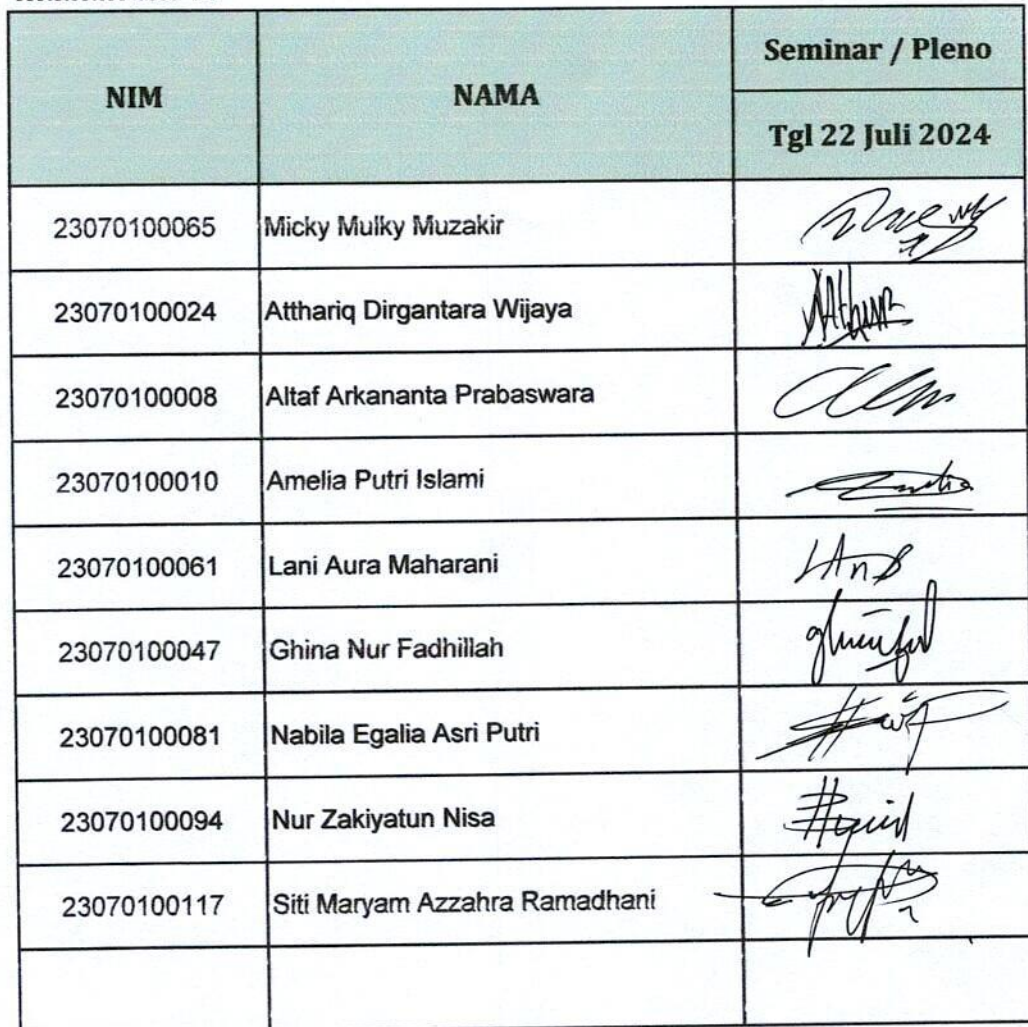 NIM NAMA Seminar / Pleno
Tgl 22 Juli 2024
23070100065 Micky Mulky Muzakir
23070100024 Atthariq Dirgantara Wijaya
23070100008 Altaf Arkananta Prabaswara
23070100010 Amelia Putri Islami
23070100061 Lani Aura Maharani
23070100047 Ghina Nur Fadhillah
23070100081 Nabila Egalia Asri Putri
23070100094 Nur Zakiyatun Nisa
23070100117 Siti Maryam Azzahra Ramadhani